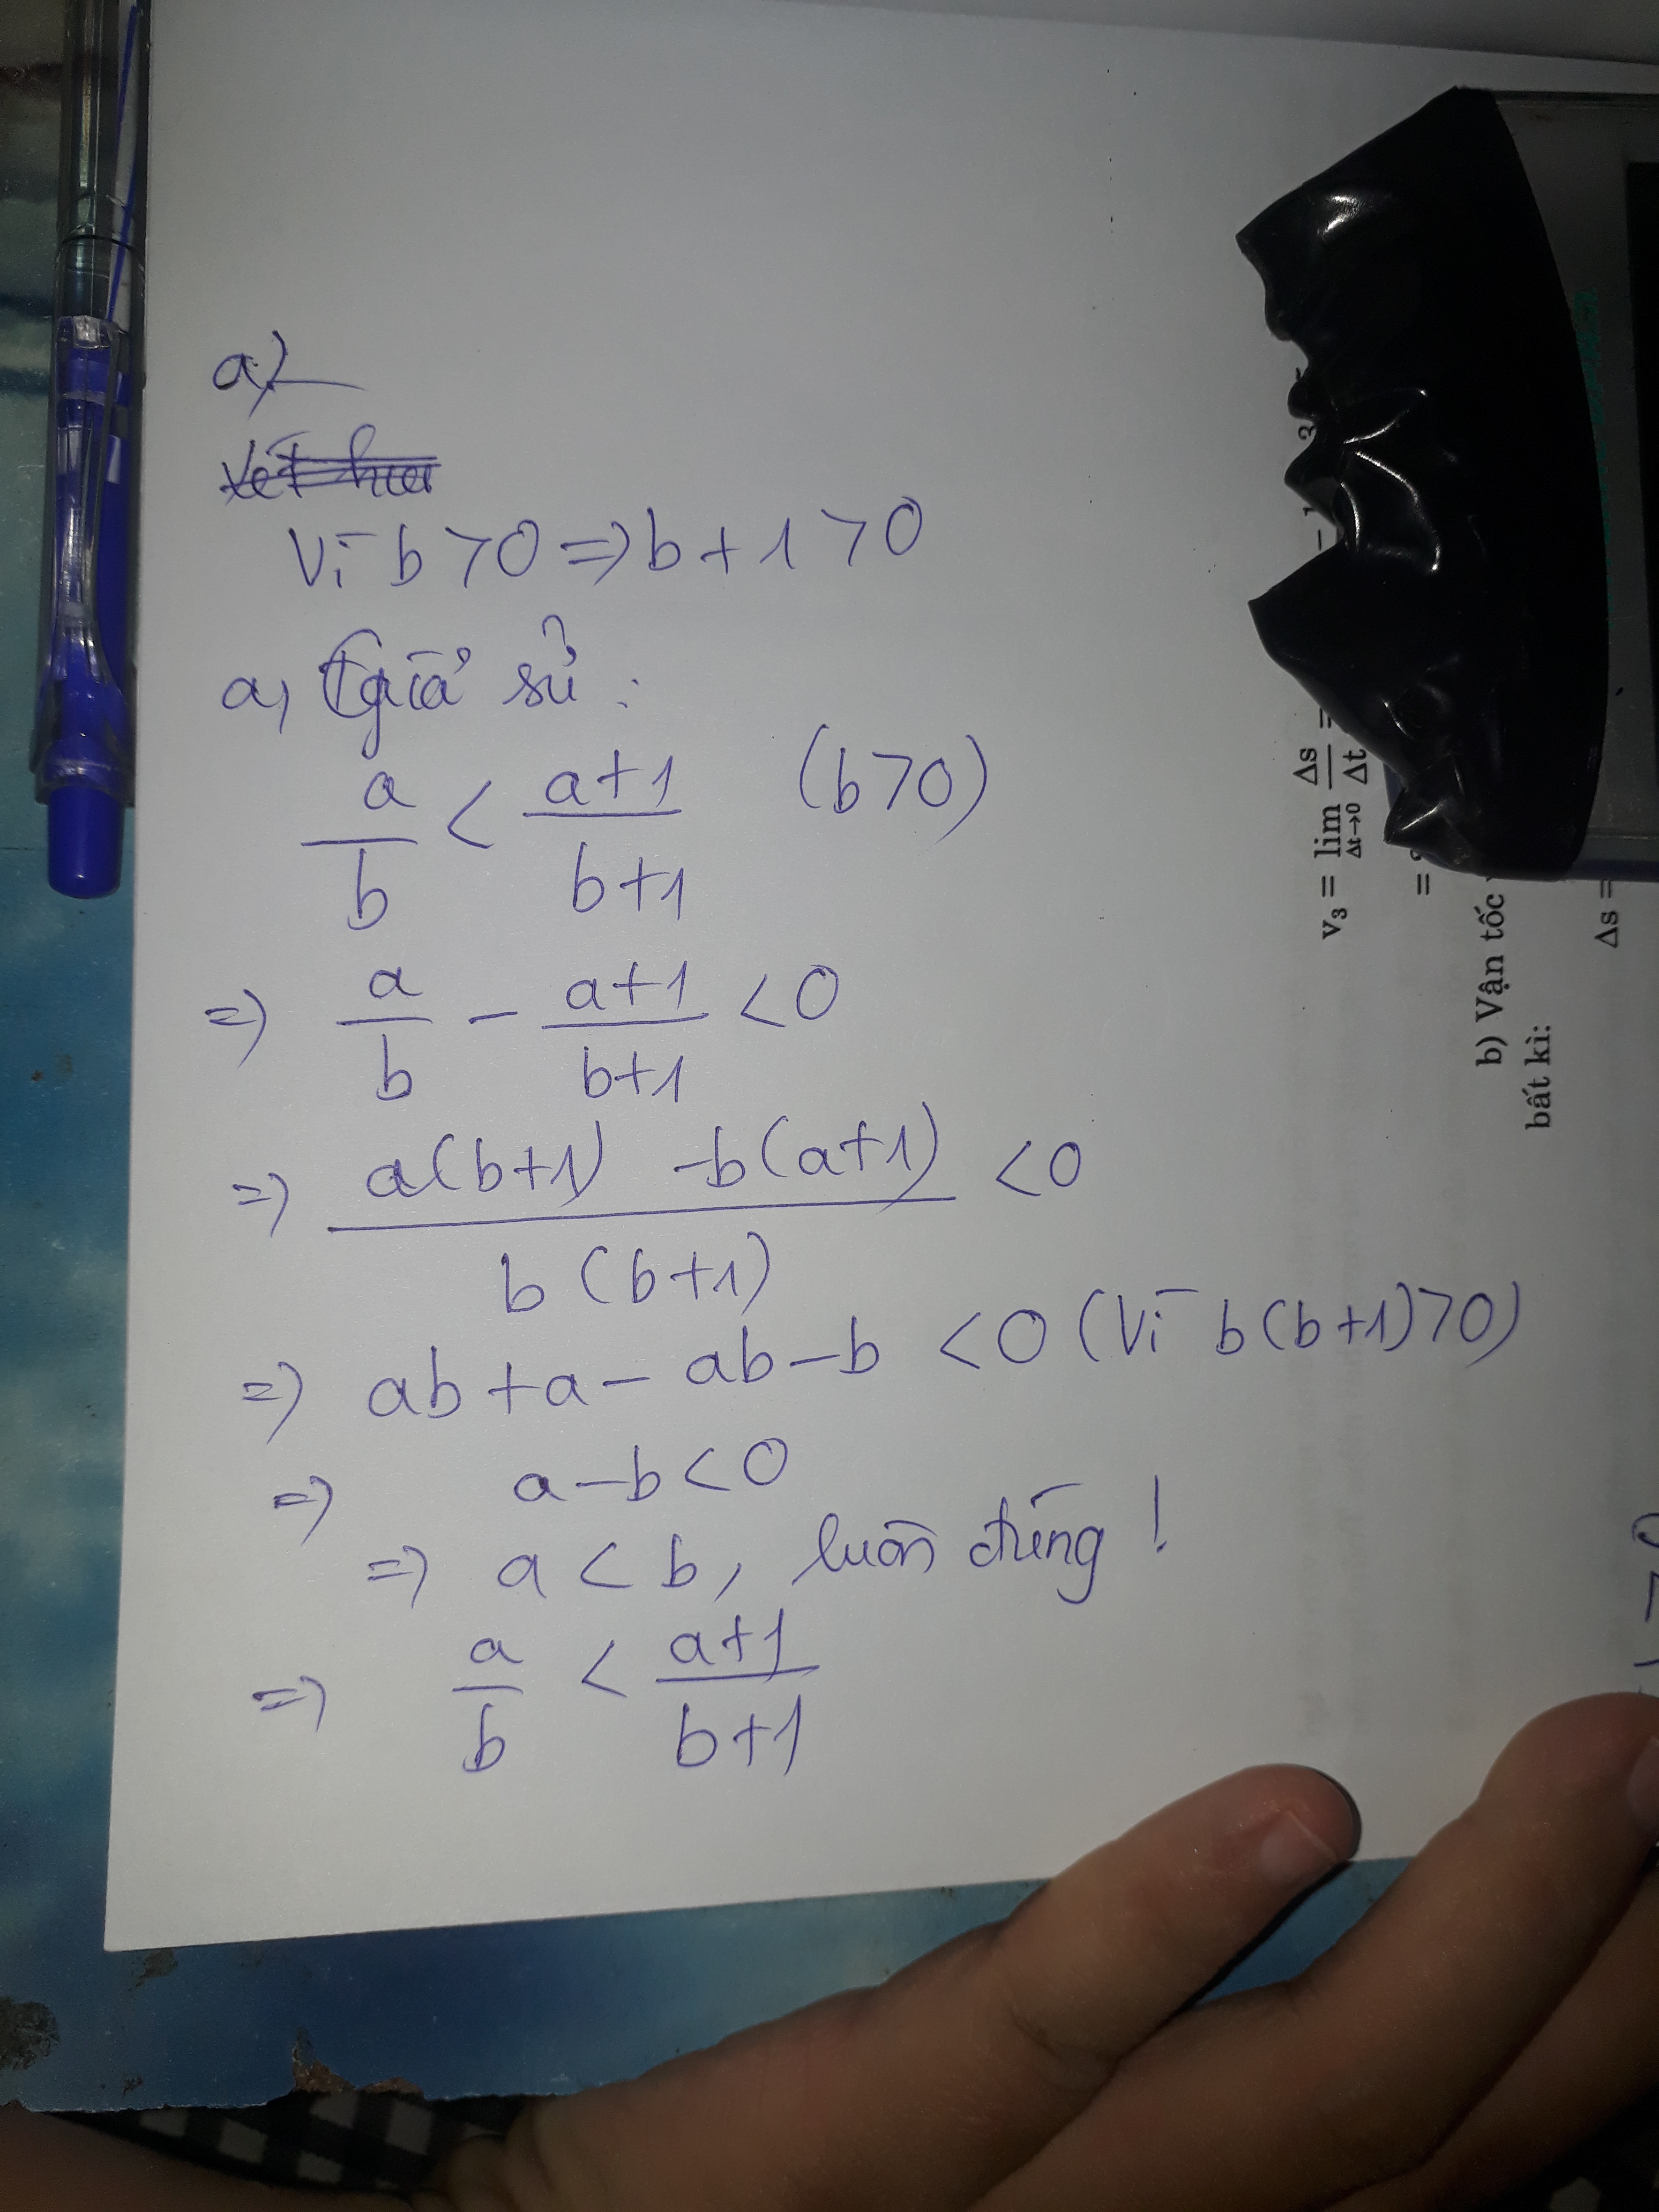 a)
Vì b > 0 => b + 1 > 0
a, Giả sử :
a/b < (a+1)/(b+1) (b>0)
=> a/b - (a+1)/(b+1) < 0
=> (a(b+1) - b(a+1))/(b(b+1)) < 0
=> ab + a - ab - b < 0 (Vì b(b+1)>0)
=> a - b < 0
=> a < b, luôn đúng !
=> a/b < (a+1)/(b+1)
v₃ = lim Δt→0 Δs/Δt =
=
b) Vận tốc
bất kì:
Δs =